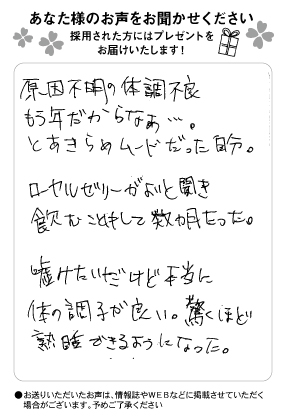 あなた様のお声をお聞かせください
採用された方にはプレゼントを
お届けいたします！
原因不明の体調不良
もう年だからなぁ…。
とあきらめムードだった自分。
ローヤルゼリーがよいと聞き
飲むことにして数カ月たった。
嘘みたいだけど本当に
体の調子が良い。驚くほど
熟睡できるようになった。
●お送りいただいたお声は、情報誌やＷＥＢなどに掲載させていただく
場合がございます。予めご了承ください